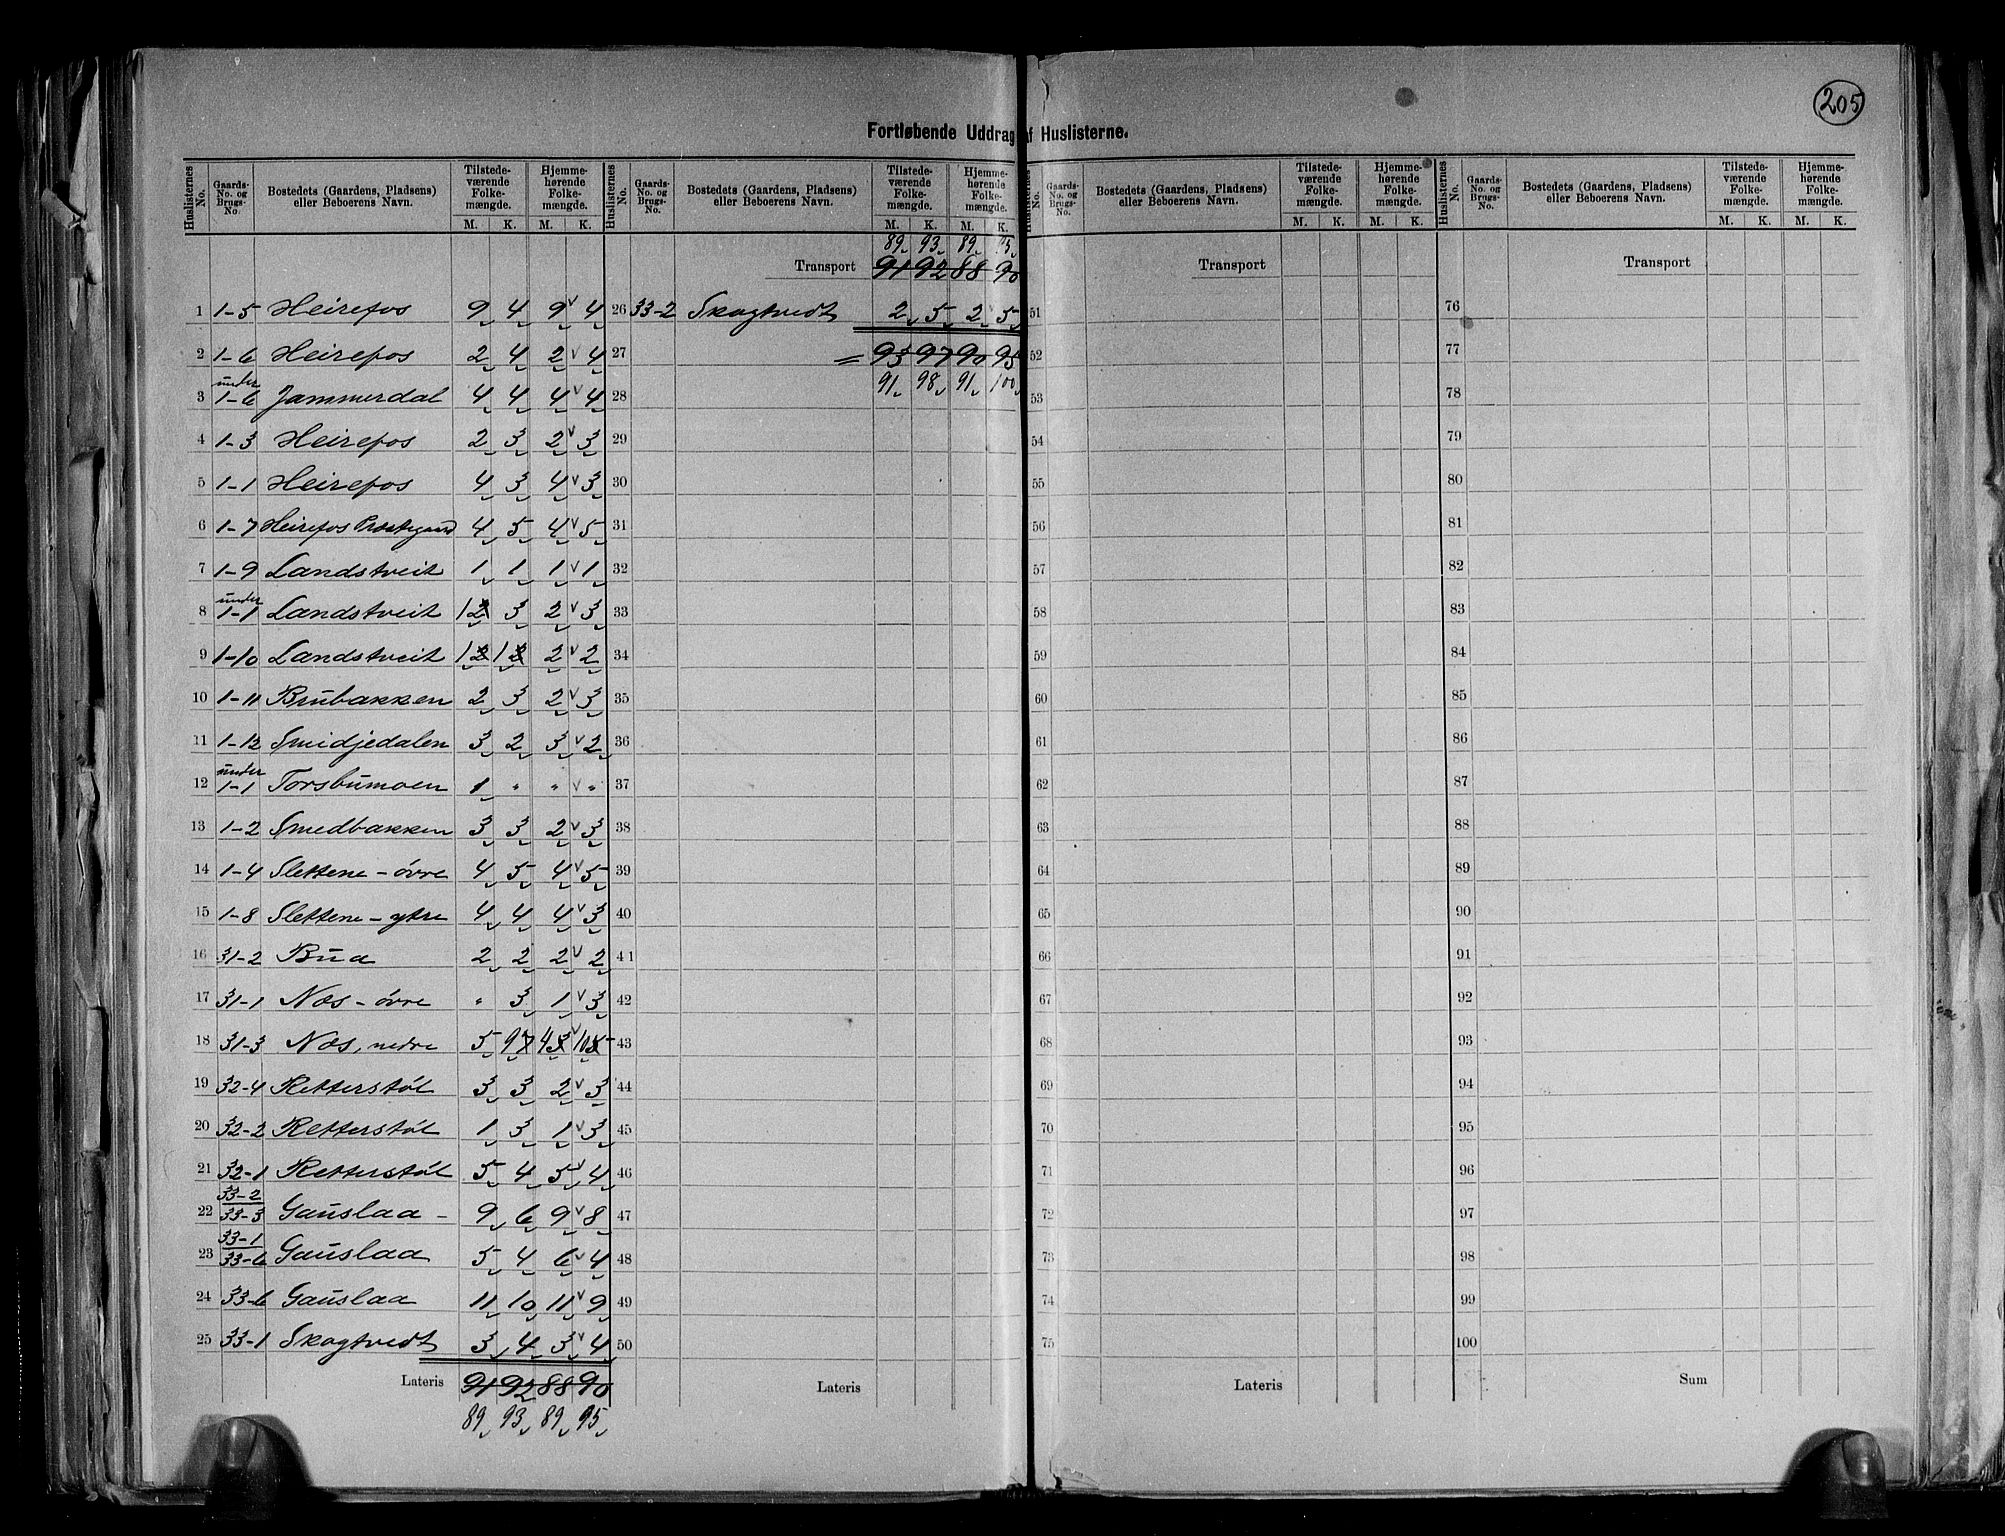 205
Fortløbende Uddrag af Huslisterne.
Huslisternes No. | Gaards-No. og Brugs-No. | Bostedets (Gaardens, Pladsens) eller Beboerens Navn. | Tilstedeværende Folkemængde. M. K. | Hjemmehørende Folkemængde. M. K.
1 1-5 Heirefos 9 4 9 4
2 1-6 Heirefos 2 4 2 4
3 under 1-6 Jammerdal 4 4 4 4
4 1-3 Heirefos 2 3 2 3
5 1-1 Heirefos 4 3 4 3
6 1-7 Heirefos 4 5 4 5
7 1-9 Landstveit 1 1 1 1
8 under 1-1 Landstveit 1 2 3 2 3
9 1-10 Landstveit 1 2 1 2 2 2
10 1-11 Brubakken 2 3 2 3
11 1-12 Smidjedalen 3 2 3 2
12 under 1-1 Torsbumoen 1 " " "
13 1-2 Smedbakken 3 3 2 3
14 1-4 Slettene - övre 4 5 4 5
15 1-8 Slettene - ytre 4 4 4 3
16 31-2 Bua 2 2 2 2
17 31-1 Næs - övre " 3 1 3
18 31-3 Næs, nedre 5 9 7 4 3 10 5
19 32-4 Retterstöl 3 3 2 3
20 32-2 Retterstöl 1 3 1 3
21 32-1 Retterstöl 5 4 5 4
22 33-2 33-3 Gauslaa - 9 6 9 8
23 33-1 33-6 Gauslaa 5 4 6 4
24 33-6 Gauslaa 11 10 11 9
25 33-1 Skogtvedt 3 4 3 4
Lateris 91 92 88 90
89 93 89 95
Huslisternes No. | Gaards-No. og Brugs-No. | Bostedets (Gaardens, Pladsens) eller Beboerens Navn. | Tilstedeværende Folkemængde. M. K. | Hjemmehørende Folkemængde. M. K.
89 93 89 95
Transport 91 92 88 90
26 33-2 Skogtvedt 2 5 2 5
27 = 93 97 90 95
91 98 91 100
28
29
30
31
32
33
34
35
36
37
38
39
40
41
42
43
44
45
46
47
48
49
50
Lateris
Huslisternes No. | Gaards-No. og Brugs-No. | Bostedets (Gaardens, Pladsens) eller Beboerens Navn. | Tilstedeværende Folkemængde. M. K. | Hjemmehørende Folkemængde. M. K.
Transport
51
52
53
54
55
56
57
58
59
60
61
62
63
64
65
66
67
68
69
70
71
72
73
74
75
Lateris
Huslisternes No. | Gaards-No. og Brugs-No. | Bostedets (Gaardens, Pladsens) eller Beboerens Navn. | Tilstedeværende Folkemængde. M. K. | Hjemmehørende Folkemængde. M. K.
Transport
76
77
78
79
80
81
82
83
84
85
86
87
88
89
90
91
92
93
94
95
96
97
98
99
100
Sum